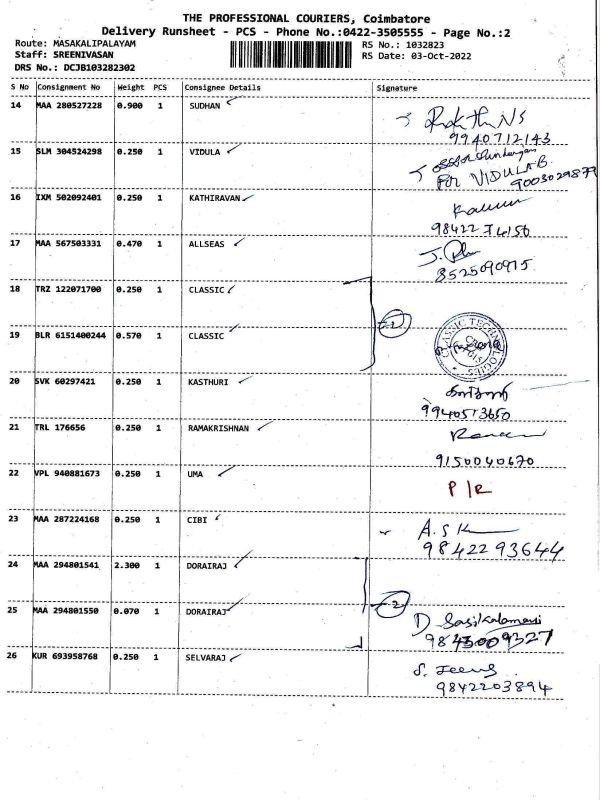 THE PROFESSIONAL COURIERS, Coimbatore
Delivery Runsheet - PCS - Phone No.:0422-3505555 - Page No.:2
Route: MASAKALIPALAYAM
Staff: SREENIVASAN
DRS No.: DCJB103282302
RS No.: 1032823
RS Date: 03-Oct-2022
S No Consignment No Weight PCS Consignee Details Signature
14 MAA 280527228 0.900 1 SUDHAN
9940712143
15 SLM 304524298 0.250 1 VIDULA
For VIDULA B
9003029879
16 IXM 502092401 0.250 1 KATHIRAVAN
98422 74156
17 MAA 567503331 0.470 1 ALLSEAS
8525090915
18 TRZ 122071700 0.250 1 CLASSIC
2
19 BLR 6151400244 0.570 1 CLASSIC
CLASSIC TECHNOLOGIES
20 SVK 60297421 0.250 1 KASTHURI
கஸ்தூரி
9940513650
21 TRL 176656 0.250 1 RAMAKRISHNAN
9150040670
22 VPL 940881673 0.250 1 UMA
P/R
23 MAA 287224168 0.250 1 CIBI
A.S.K
98422 93644
24 MAA 294801541 2.300 1 DORAIRAJ
2
25 MAA 294801550 0.070 1 DORAIRAJ
D Sasikalamani
9843009327
26 KUR 693958768 0.250 1 SELVARAJ
9842203894